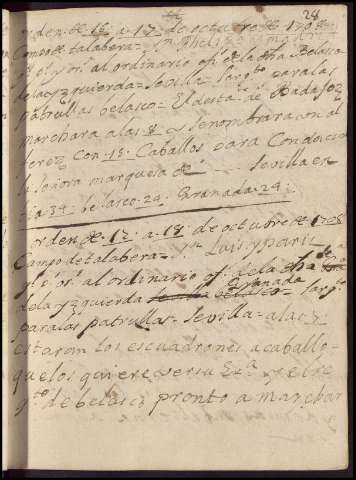 28
orden de 16 a 17 de octubre de 1708
Campo de talabera = Sn Pheli
ypo y or al ordinario ofl de la dha Belasco
de la yzquierda = Sevilla = sargto para las
patrullas belasco = El desta de Badajoz
marchara a las 8 y se nombrara un al
ferez Con 15 Caballos para Conducir
la señora marquesa de Sevilla en
dia 34 belasco 24 Granada 24
orden de 17 a 18 de octubre de 1708
Campo de talabera = Sn Luis y paris
ypo or al ordinario ofl de la dha
de la yzquierda Granada = sargto
para las patrullas = Sevilla = a las 7
estaran los escuadrones a caballo
que los quiere ver su Exa y el re
gto de belasco pronto a marchar